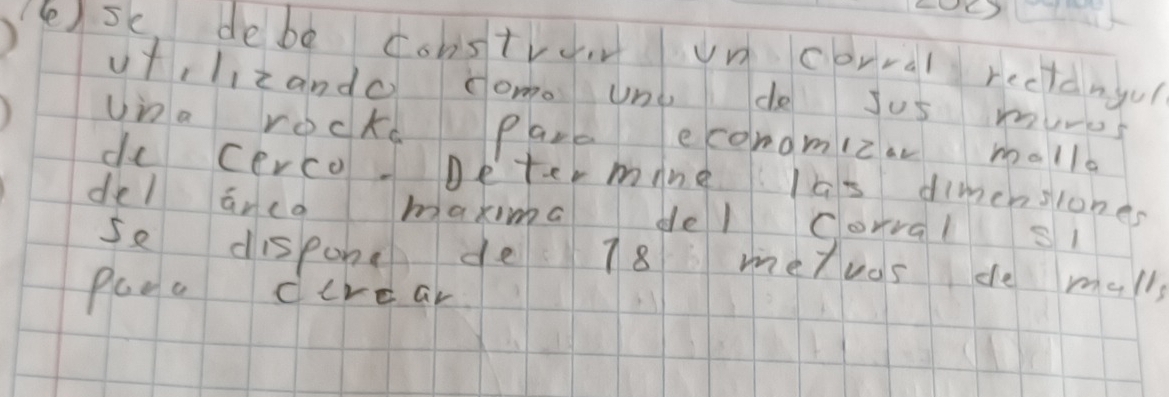 6) se debe construir un corral rectángul
utilizando como uno de sus muros
una rocka para economizar malla
de cerco. Determine las dimensiones
del área maxima del corral si
se dispone de 78 metros de malla
para cercar